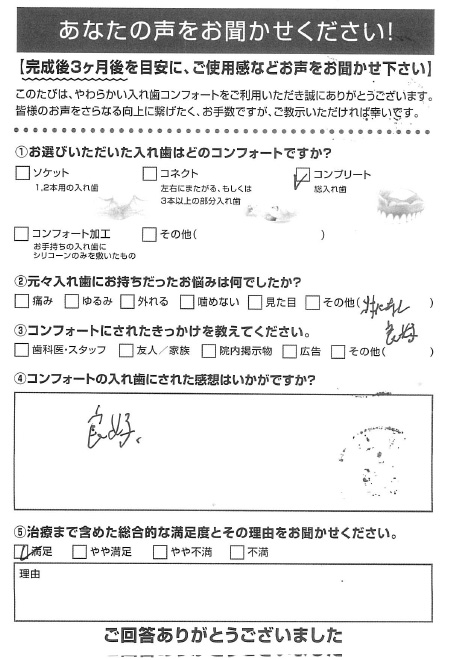 あなたの声をお聞かせください!
【完成後3ヶ月後を目安に、ご使用感などお声をお聞かせ下さい】
このたびは、やわらかい入れ歯コンフォートをご利用いただき誠にありがとうございます。
皆様のお声をさらなる向上に繋げたく、お手数ですが、ご教示いただければ幸いです。
①お選びいただいた入れ歯はどのコンフォートですか?
ソケット
1,2本用の入れ歯
コネクト
左右にまたがる、もしくは
3本以上の部分入れ歯
コンプリート
総入れ歯
コンフォート加工
お手持ちの入れ歯に
シリコーンのみを敷いたもの
その他( )
②元々入れ歯にお持ちだったお悩みは何でしたか?
痛み ゆるみ 外れる 噛めない 見た目 その他(特になし )
良好
③コンフォートにされたきっかけを教えてください。
歯科医・スタッフ 友人/家族 院内掲示物 広告 その他( )
④コンフォートの入れ歯にされた感想はいかがですか?
良好、
⑤治療まで含めた総合的な満足度とその理由をお聞かせください。
満足 やや満足 やや不満 不満
理由
ご回答ありがとうございました